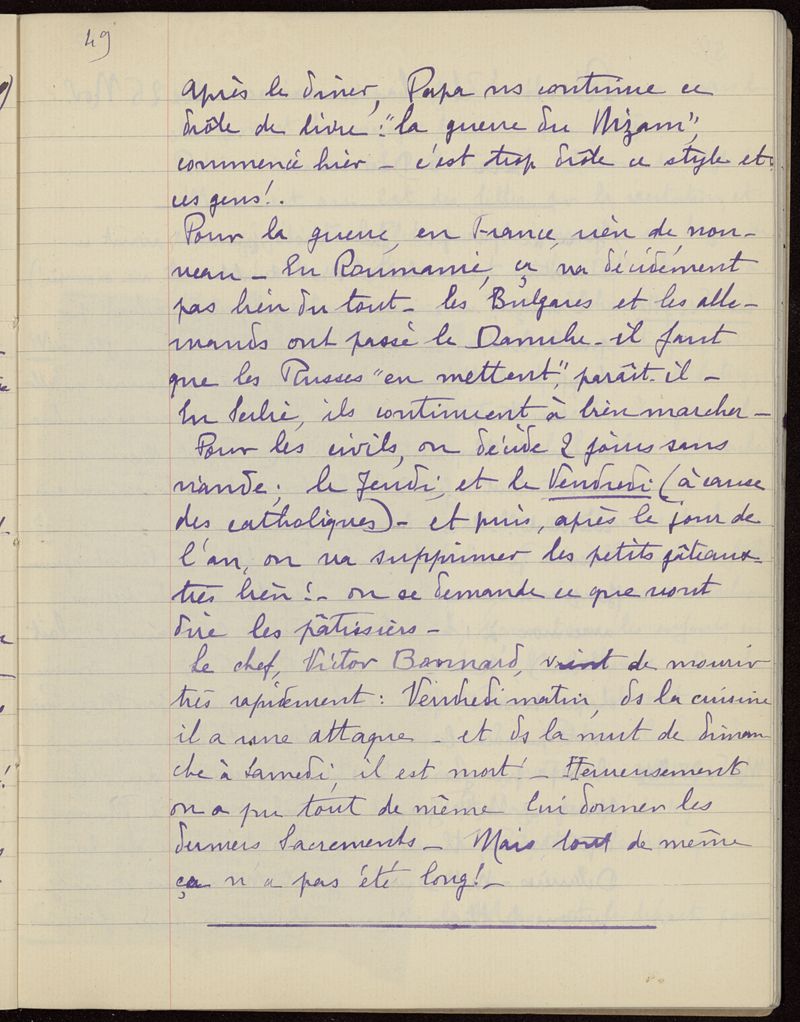 49
Après le dîner, Papa ns continue ce
drôle de livre: "la guerre du Nizam",
commencé hier - c'est trop drôle ce style et
ces gens!.
Pour la guerre, en France, rien de nou-
veau - En Roumanie, ça va décidément
pas bien du tout - les Bulgares et les alle-
mands ont passé le Danube - il faut
que les Russes "en mettent", paraît-il -
En Serbie, ils continuent à bien marcher -
Pour les civils, on décide 2 jours sans
viande; le Jeudi, et le Vendredi (à cause
des catholiques) - et puis, après le jour de
l'an, on va supprimer les petits gâteaux -
très bien! - on se demande ce que vont
dire les pâtissiers -
Le chef, Victor Bonnard, vient de mourir
très rapidement: Vendredi matin, ds la cuisine
il a une attaque - et ds la nuit de diman-
che à Samedi, il est mort! - Heureusement
on a pu tout de même lui donner les
derniers Sacrements - Mais tout de même
ça n'a pas été long! -